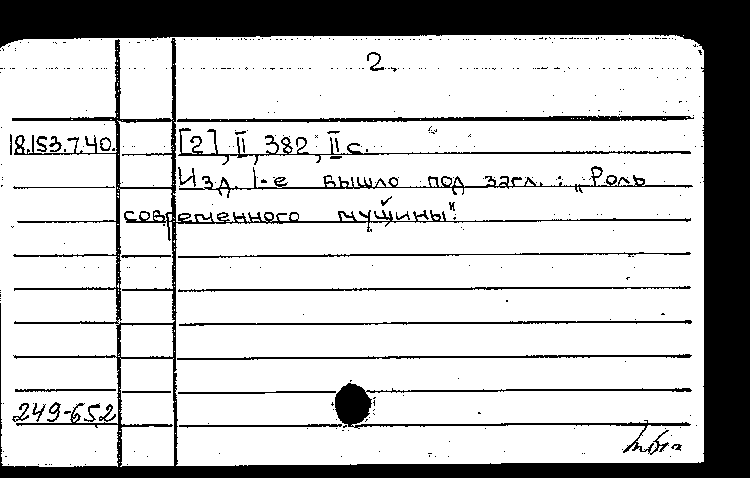 2.
18.153.7.40. [2], II, 382, II с.
Изд. 1-е вышло под загл.: „Роль
современного мущины".
249-652